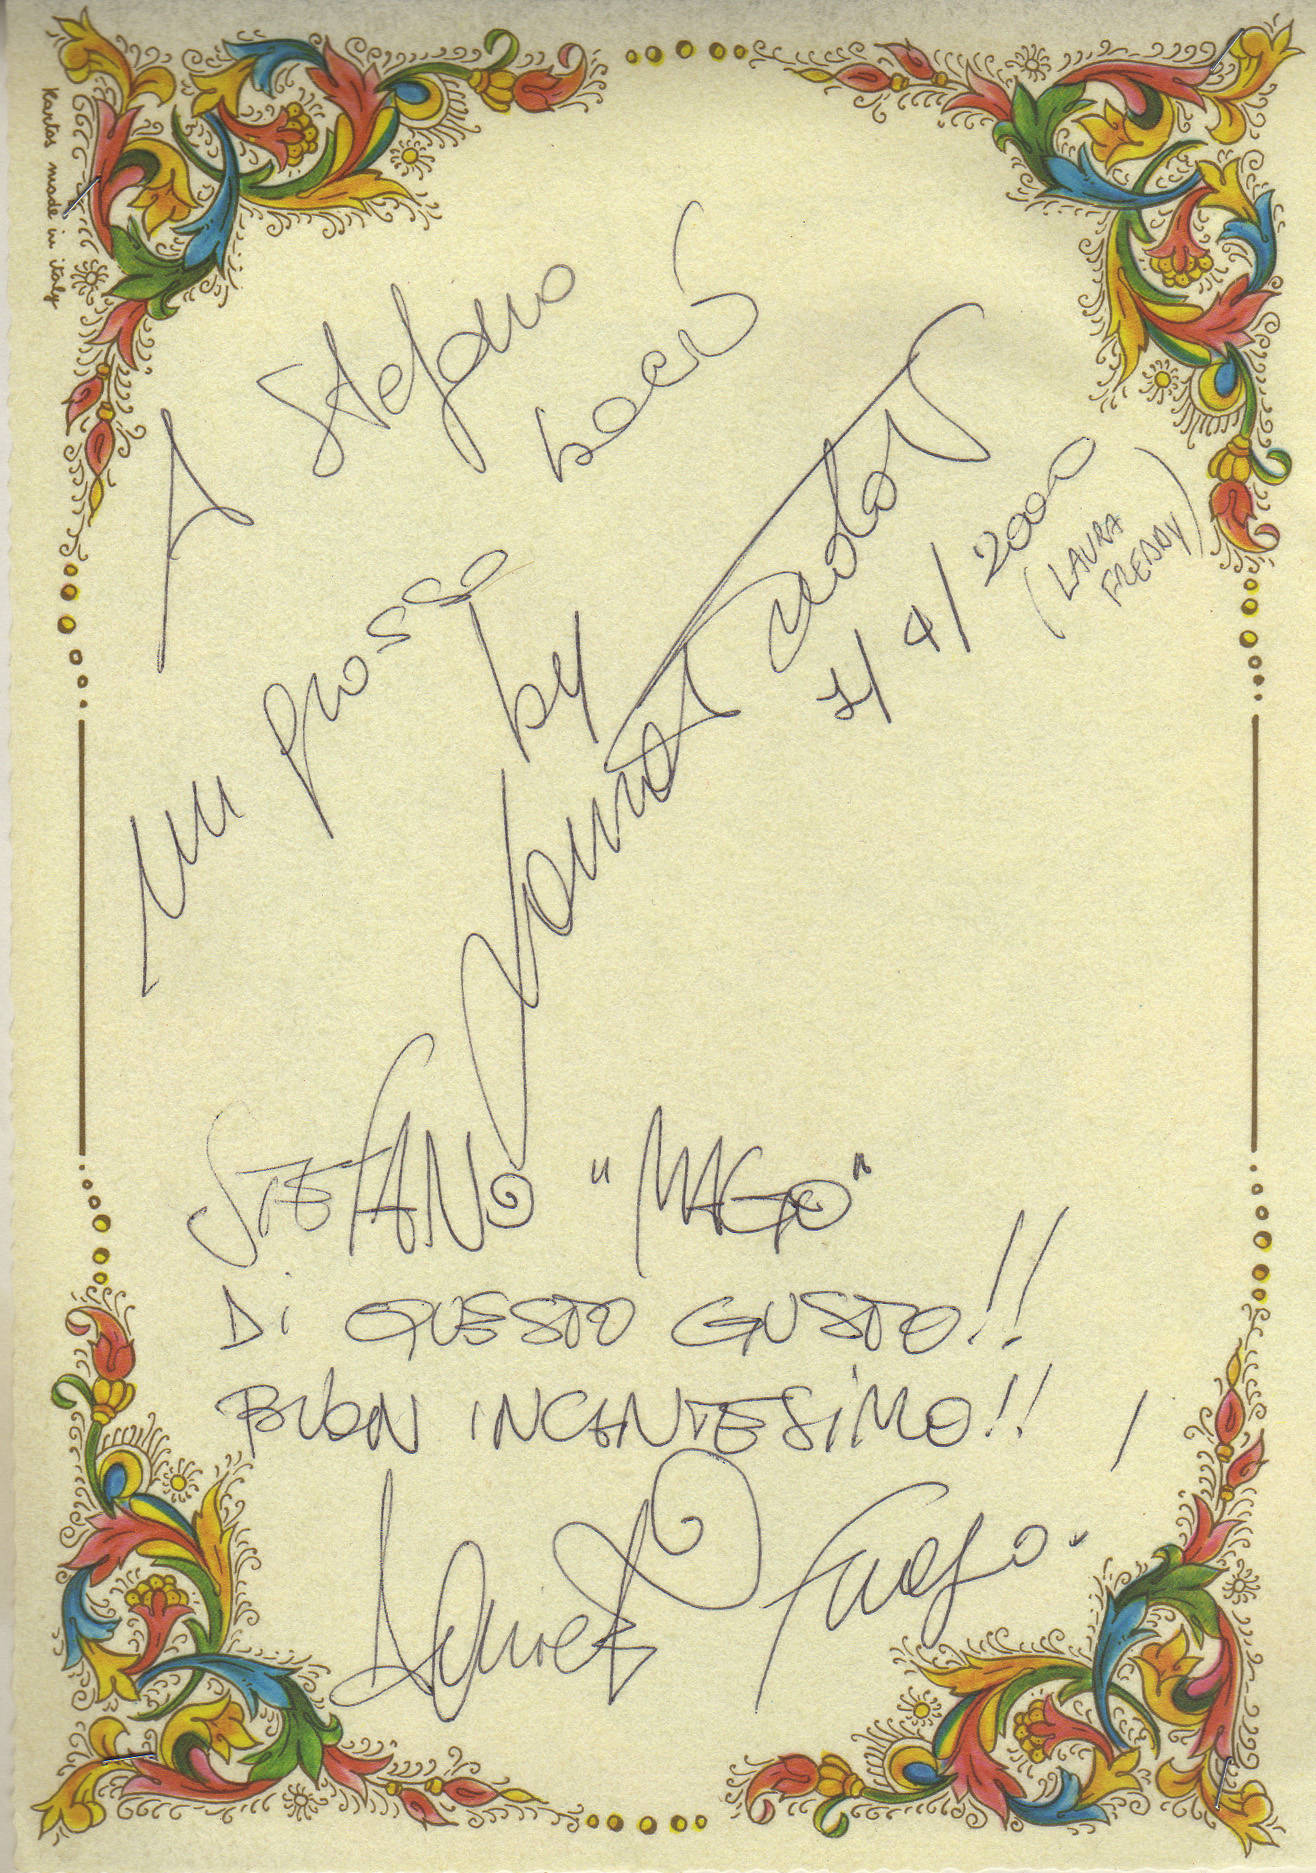 Kartos made in italy
A Stefano
un grosso
by
1/4/2000
(LAURA
FREDDY)
STEFANO "MAGO"
Di QUESTO GUSTO!!
BUON INCANTESiMO!!